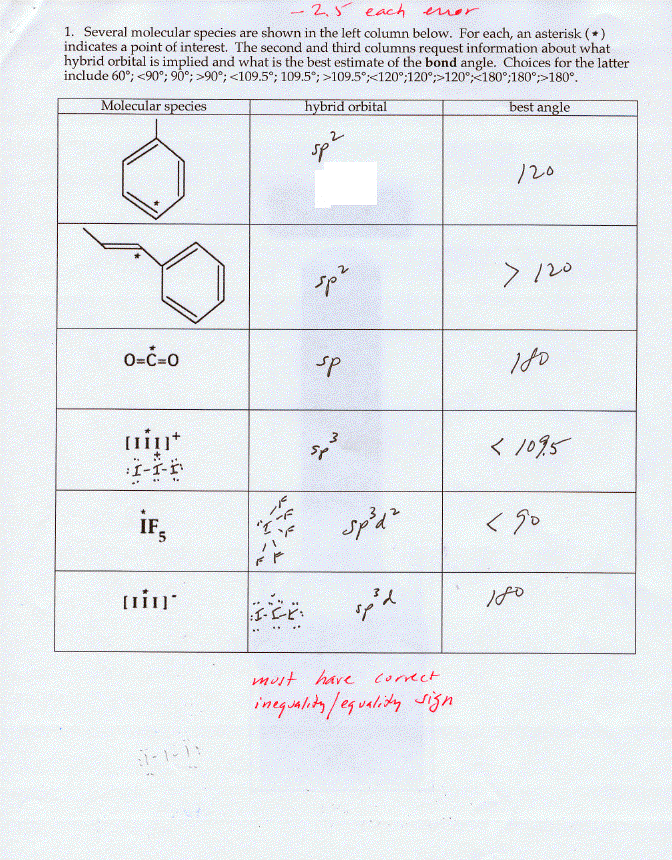 - 2.5 each error
1. Several molecular species are shown in the left column below. For each, an asterisk (*)
indicates a point of interest. The second and third columns request information about what
hybrid orbital is implied and what is the best estimate of the bond angle. Choices for the latter
include 60°; <90°; 90°; >90°; <109.5°; 109.5°; >109.5°;<120°;120°;>120°;<180°;180°;>180°.
Molecular species hybrid orbital best angle
* sp² 120
* sp² > 120
*
O=C=O sp 180
*
[III]⁺ sp³ < 109.5
:I-I-I:
+
*
IF₅ F F I F F F sp³d² < 90
*
[III]⁻ :I-I-I: sp³d 180
must have correct
inequality/equality sign
:I-I-I: